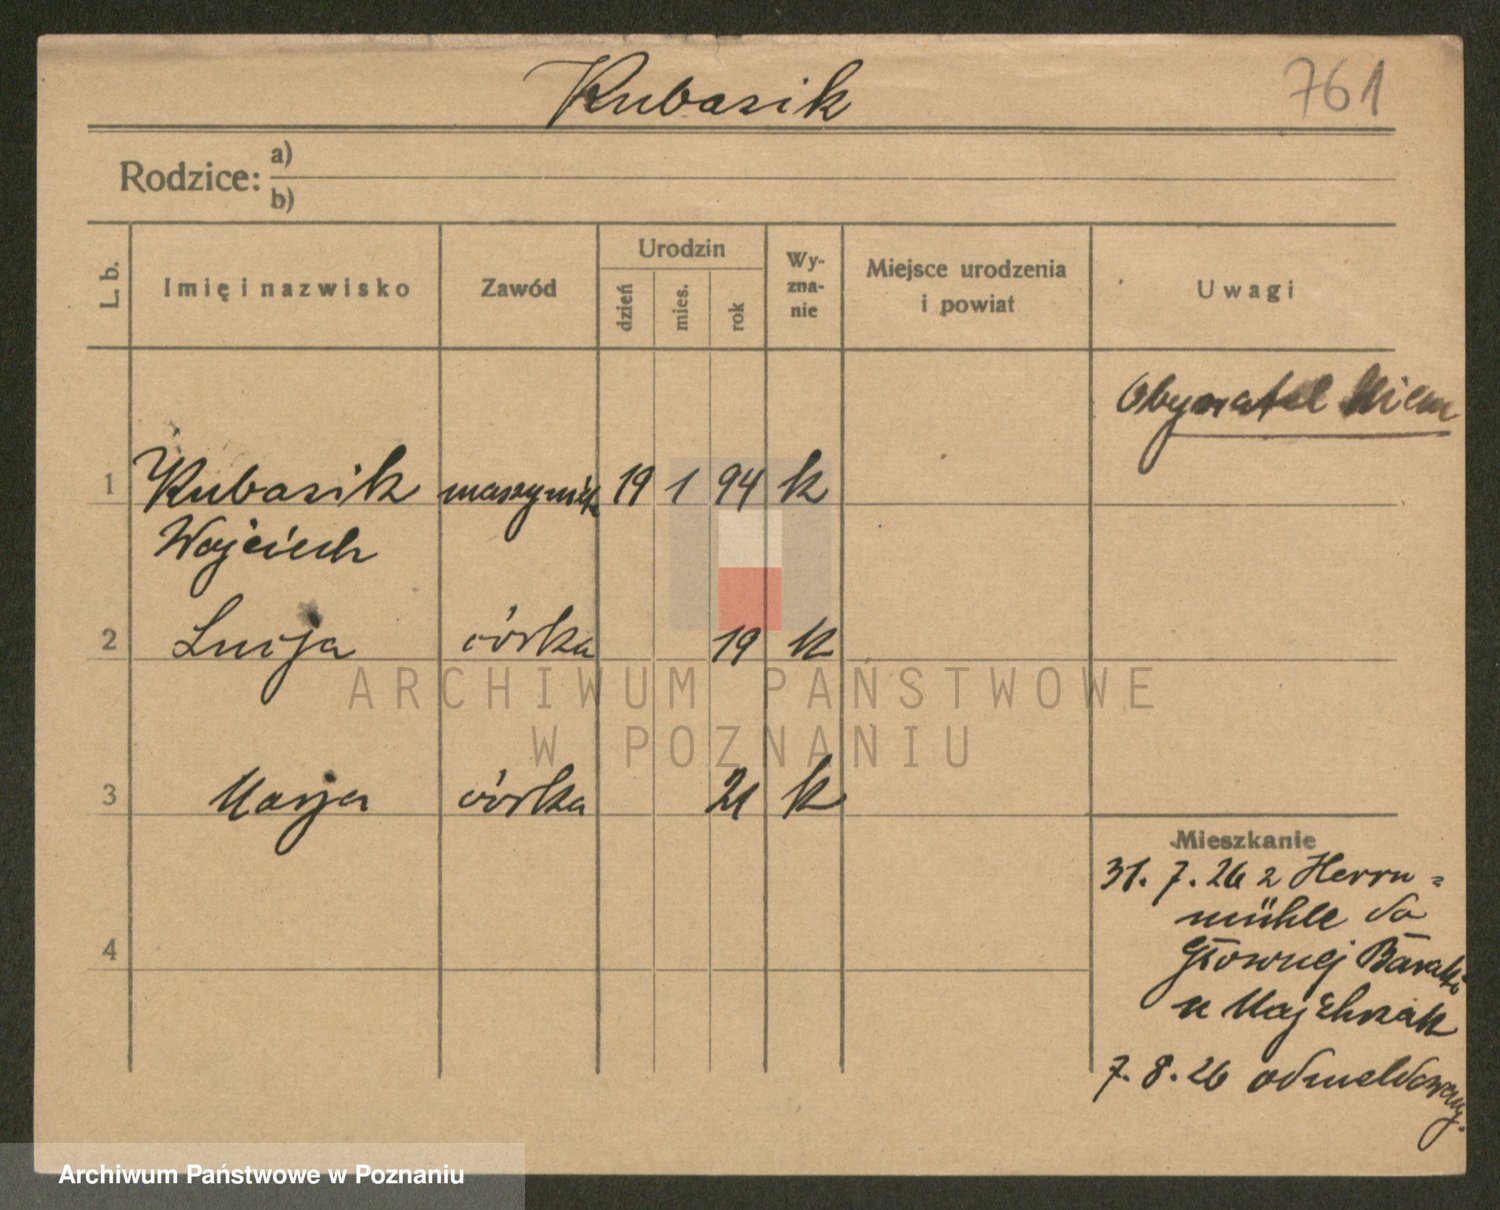 Kubasik
761
Rodzice: a)
b)
L. b.
Imię i nazwisko
Zawód
Urodzin
dzień
mies.
rok
Wy-
zna-
nie
Miejsce urodzenia
i powiat
Uwagi
Obywatel Niem
1 Kubasik maszynista 19 1 94 k
Wojciech
2 Lucja córka 19 k
3 Marja córka 21 k
4
Mieszkanie
31. 7. 26 z Herrn=
mühle do
Głównej Baraki
u Majchrzak
7. 8. 26 odmeldowany.
ARCHIWUM PAŃSTWOWE
W POZNANIU
Archiwum Państwowe w Poznaniu